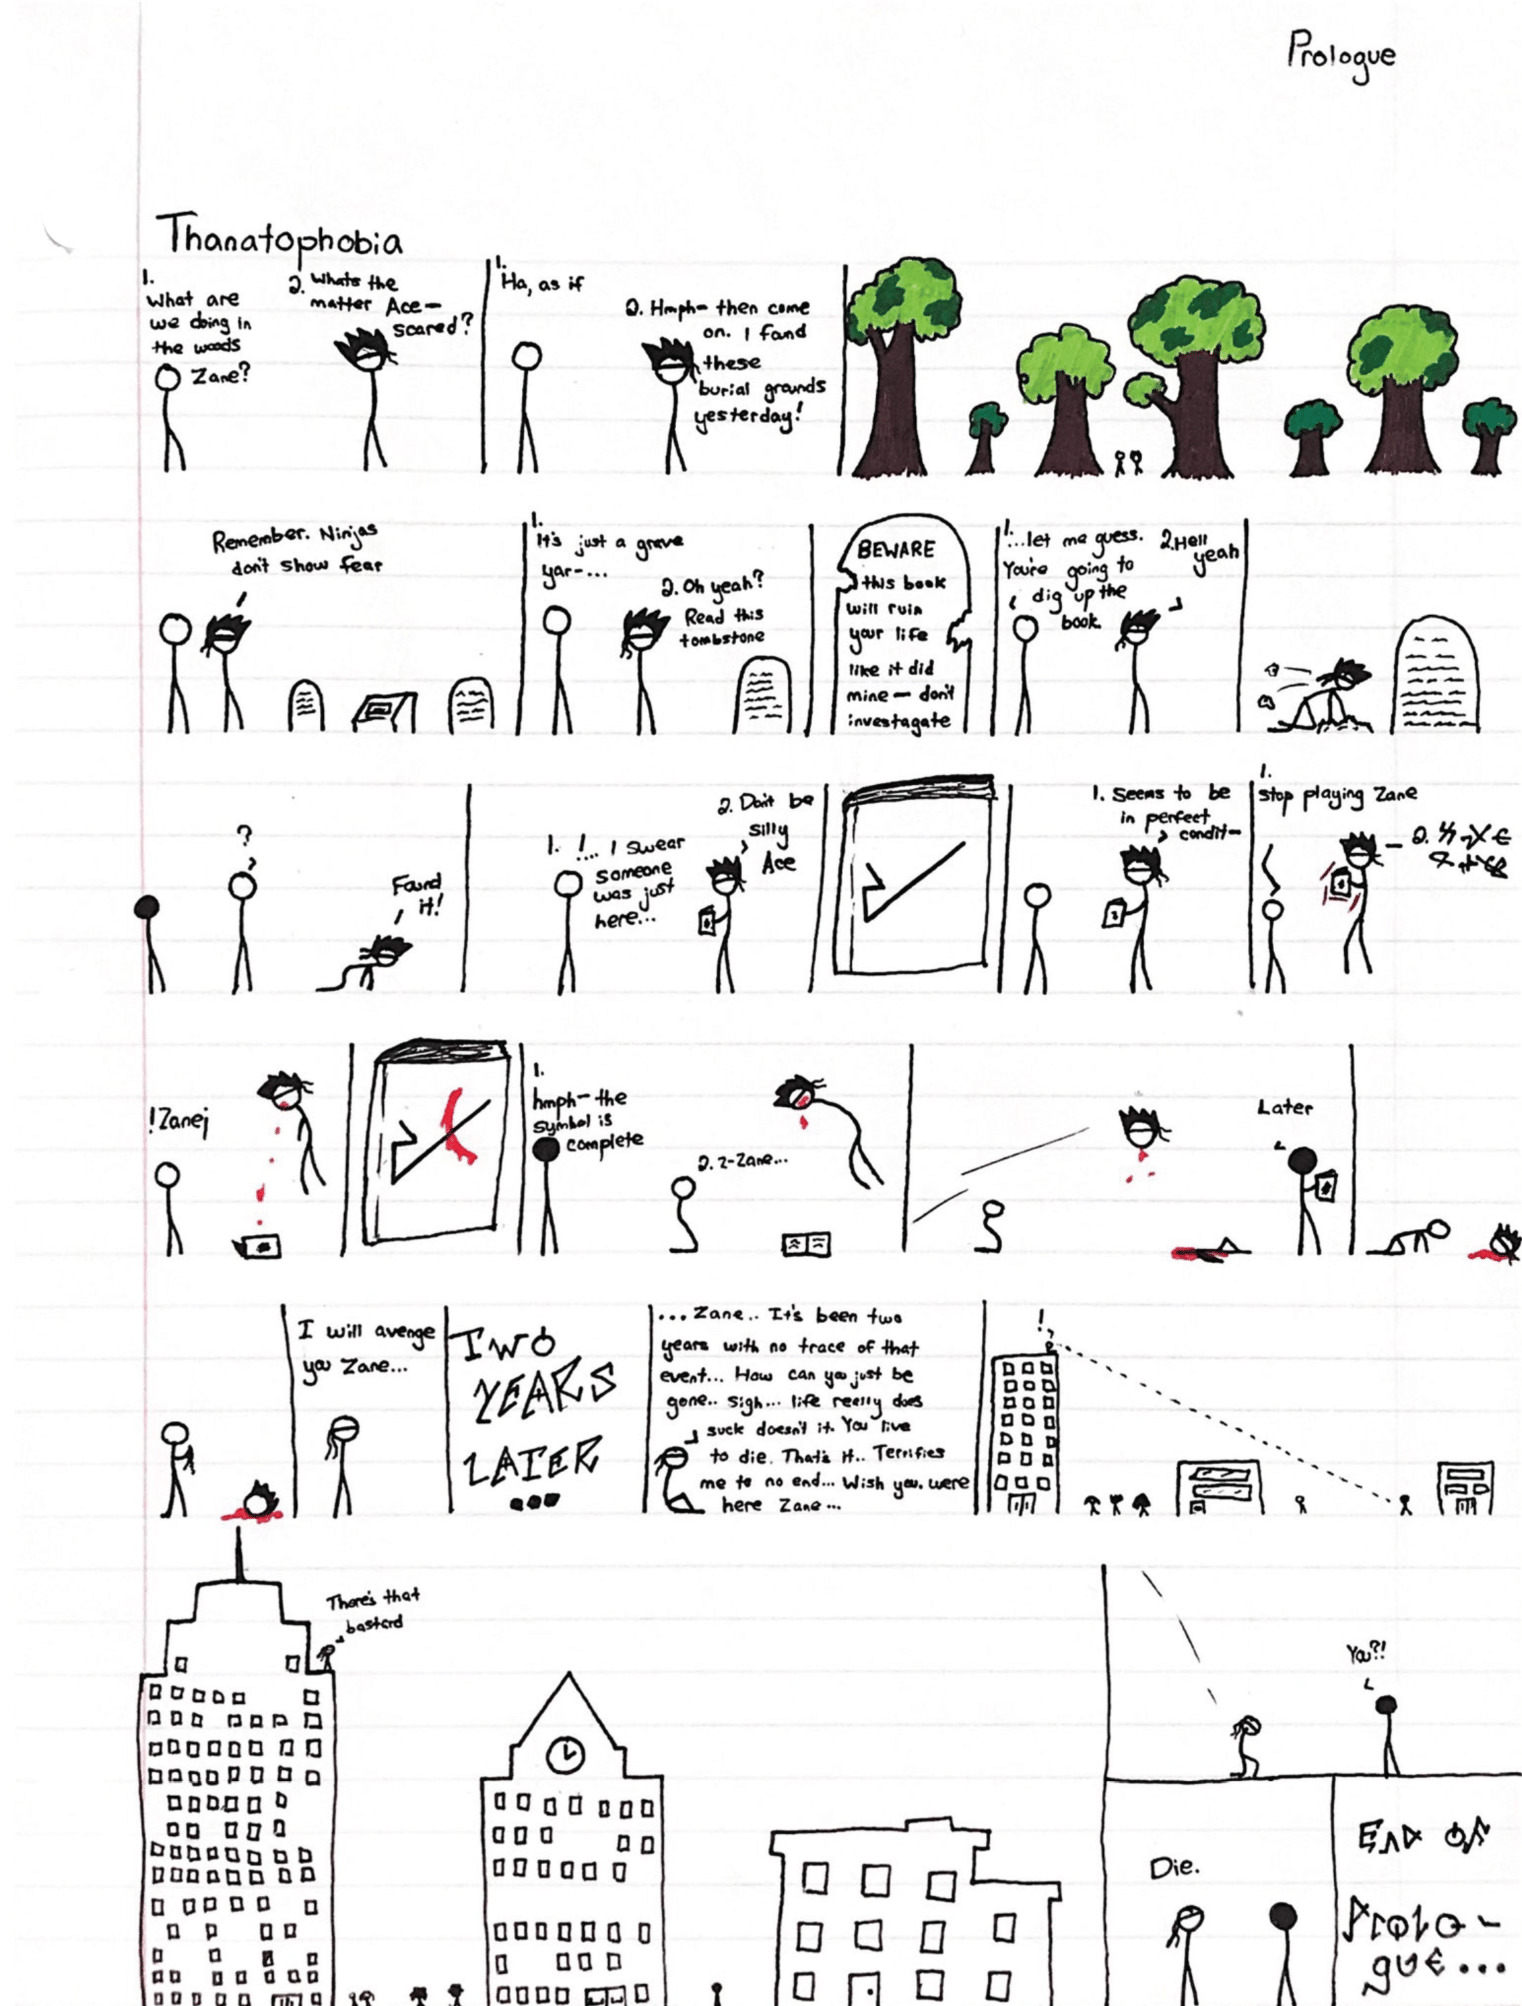 Prologue
Thanatophobia
1.
What are
we doing in
the woods
Zane?
2. Whats the
matter Ace-
scared?
1.
Ha, as if
2. Hmph- then come
on. I found
these
burial grounds
yesterday!
Remember. Ninjas
don't show fear
1.
It's just a grave
yar-...
2. Oh yeah?
Read this
tombstone
BEWARE
this book
will ruin
your life
like it did
mine - don't
investagate
1.
...let me guess.
You're going to
dig up the
book.
2. Hell
yeah
?
Found
it!
1. !... I swear
someone
was just
here...
2. Don't be
silly
Ace
1. Seems to be
in perfect
condit-
1.
Stop playing Zane
2.
!Zane¡
1.
hmph- the
symbol is
complete
2. Z-Zane...
Later
I will avenge
you Zane...
TWO
YEARS
LATER
...
...Zane.. It's been two
years with no trace of that
event... How can you just be
gone.. sigh... life really does
suck doesn't it. You live
to die. That's it.. Terrifies
me to no end... Wish you were
here Zane...
!
There's that
bastard
You?!
Die.
END OF
Prolo-
gue...